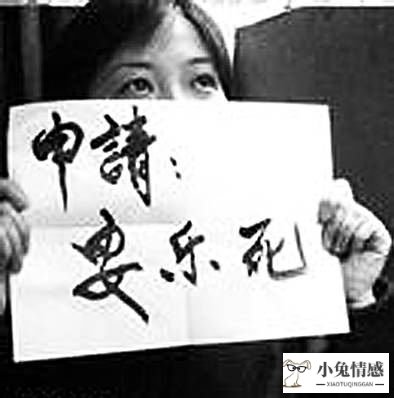 申請：
要乐死
小兔情感
XIAOTUQINGGAN